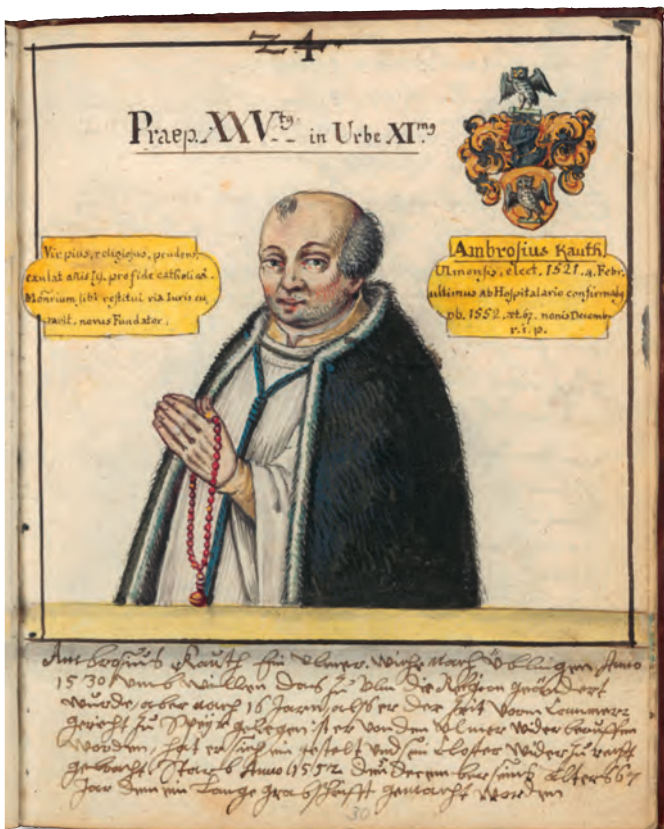 24
Praep. XXV.tg in Urbe XI.mg
Vir pius, religiosus, prudens,
exulat añis 19. pro fide catholica.
Monrium sibi restitui via Iuris cu,
ravit. novus Fundator,
Ambrosius Kauth,
Ulmensis, elect. 1521. 4. Febr.
ultimus ab Hospitalario confirmatg
ob. 1552. æt. 67. nonis Decemb
r. i. p.
Ambrosius Kauth Ein Ulmer. wiche nach Üblingen Anno
1530 umb willen das zu Ulm die Religion geändert
wurde, aber nach 16 Jaren, als er der Zeit vorm Cammerr
gericht zu Speyr gelegen ist er von den Ulmer wider beruffen
worden, hat er sich ein gestelt und sein Closter wider zu recht
gebracht. Starb Anno 1552 den Decembers seines Alters 67
Jar dem ein Lange grabschrifft gemacht worden
30